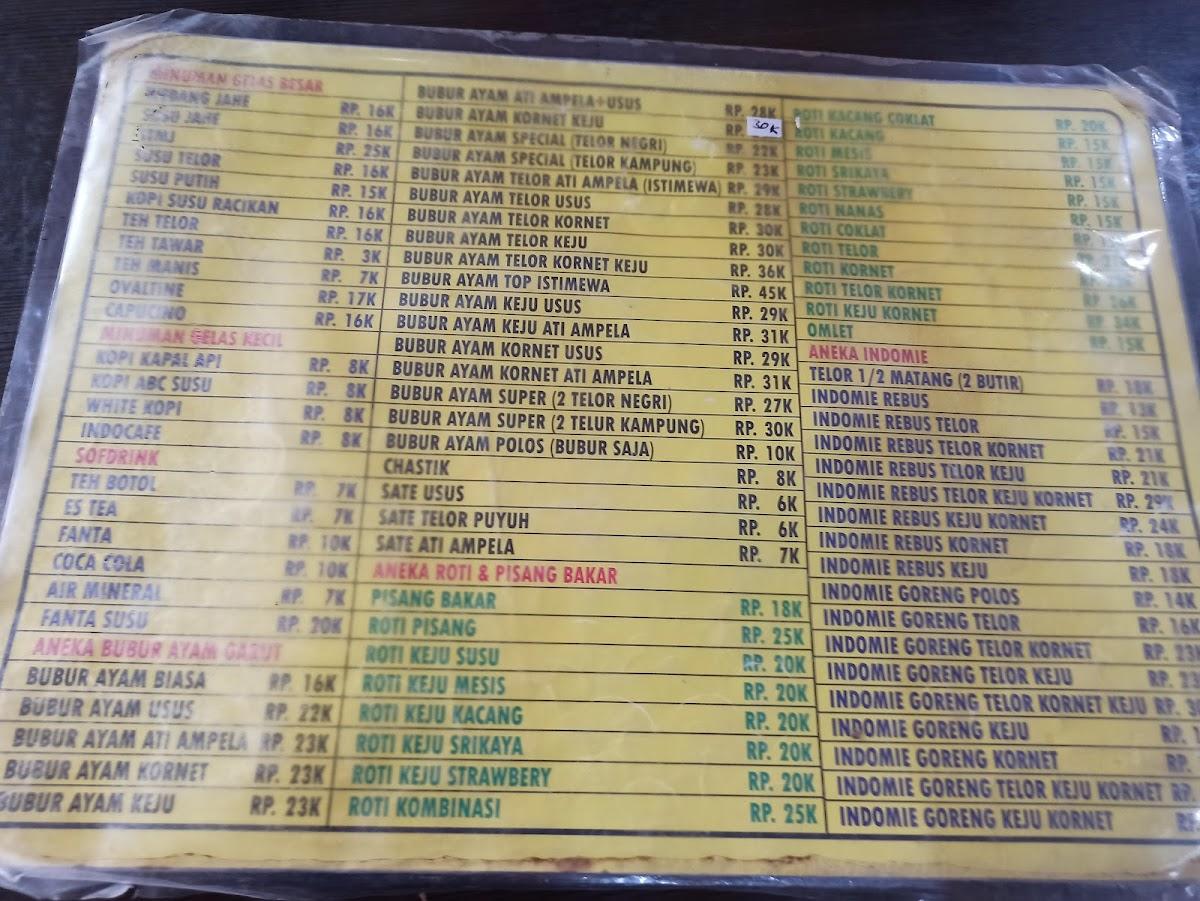 MINUMAN GELAS BESAR
JAHE RP. 16K
SUSU JAHE RP. 16K
STMJ RP. 25K
SUSU TELOR RP. 16K
SUSU PUTIH RP. 15K
KOPI SUSU RACIKAN RP. 16K
TEH TELOR RP. 16K
TEH TAWAR RP. 3K
TEH MANIS RP. 7K
OVALTINE RP. 17K
CAPUCINO RP. 16K
MINUMAN GELAS KECIL
KOPI KAPAL API RP. 8K
KOPI ABC SUSU RP. 8K
WHITE KOPI RP. 8K
INDOCAFE RP. 8K
SOFDRINK
TEH BOTOL RP. 7K
ES TEA RP. 7K
FANTA RP. 10K
COCA COLA RP. 10K
AIR MINERAL RP. 7K
FANTA SUSU RP. 20K
ANEKA BUBUR AYAM GARUT
BUBUR AYAM BIASA RP. 16K
BUBUR AYAM USUS RP. 22K
BUBUR AYAM ATI AMPELA RP. 23K
BUBUR AYAM KORNET RP. 23K
BUBUR AYAM KEJU RP. 23K
BUBUR AYAM ATI AMPELA+USUS RP. 28K
BUBUR AYAM KORNET KEJU RP. 30K
BUBUR AYAM SPECIAL (TELOR NEGRI) RP. 22K
BUBUR AYAM SPECIAL (TELOR KAMPUNG) RP. 23K
BUBUR AYAM TELOR ATI AMPELA (ISTIMEWA) RP. 29K
BUBUR AYAM TELOR USUS RP. 28K
BUBUR AYAM TELOR KORNET RP. 30K
BUBUR AYAM TELOR KEJU RP. 30K
BUBUR AYAM TELOR KORNET KEJU RP. 36K
BUBUR AYAM TOP ISTIMEWA RP. 45K
BUBUR AYAM KEJU USUS RP. 29K
BUBUR AYAM KEJU ATI AMPELA RP. 31K
BUBUR AYAM KORNET USUS RP. 29K
BUBUR AYAM KORNET ATI AMPELA RP. 31K
BUBUR AYAM SUPER (2 TELOR NEGRI) RP. 27K
BUBUR AYAM SUPER (2 TELUR KAMPUNG) RP. 30K
BUBUR AYAM POLOS (BUBUR SAJA) RP. 10K
CHASTIK RP. 8K
SATE USUS RP. 6K
SATE TELOR PUYUH RP. 6K
SATE ATI AMPELA RP. 7K
ANEKA ROTI & PISANG BAKAR
PISANG BAKAR RP. 18K
ROTI PISANG RP. 25K
ROTI KEJU SUSU RP. 20K
ROTI KEJU MESIS RP. 20K
ROTI KEJU KACANG RP. 20K
ROTI KEJU SRIKAYA RP. 20K
ROTI KEJU STRAWBERY RP. 20K
ROTI KOMBINASI RP. 25K
ROTI KACANG COKLAT RP. 20K
ROTI KACANG RP. 15K
ROTI MESIS RP. 15K
ROTI SRIKAYA RP. 15K
ROTI STRAWBERY RP. 15K
ROTI NANAS RP. 15K
ROTI COKLAT RP.
ROTI TELOR
ROTI KORNET
ROTI TELOR KORNET RP. 26K
ROTI KEJU KORNET RP. 24K
OMLET RP. 15K
ANEKA INDOMIE
TELOR 1/2 MATANG (2 BUTIR) RP. 18K
INDOMIE REBUS RP. 13K
INDOMIE REBUS TELOR RP. 15K
INDOMIE REBUS TELOR KORNET RP. 21K
INDOMIE REBUS TELOR KEJU RP. 21K
INDOMIE REBUS TELOR KEJU KORNET RP. 29K
INDOMIE REBUS KEJU KORNET RP. 24K
INDOMIE REBUS KORNET RP. 18K
INDOMIE REBUS KEJU RP. 18K
INDOMIE GORENG POLOS RP. 14K
INDOMIE GORENG TELOR RP. 16K
INDOMIE GORENG TELOR KORNET RP. 23K
INDOMIE GORENG TELOR KEJU RP.
INDOMIE GORENG TELOR KORNET KEJU RP.
INDOMIE GORENG KEJU RP.
INDOMIE GORENG KORNET RP.
INDOMIE GORENG TELOR KEJU KORNET RP.
INDOMIE GORENG KEJU KORNET